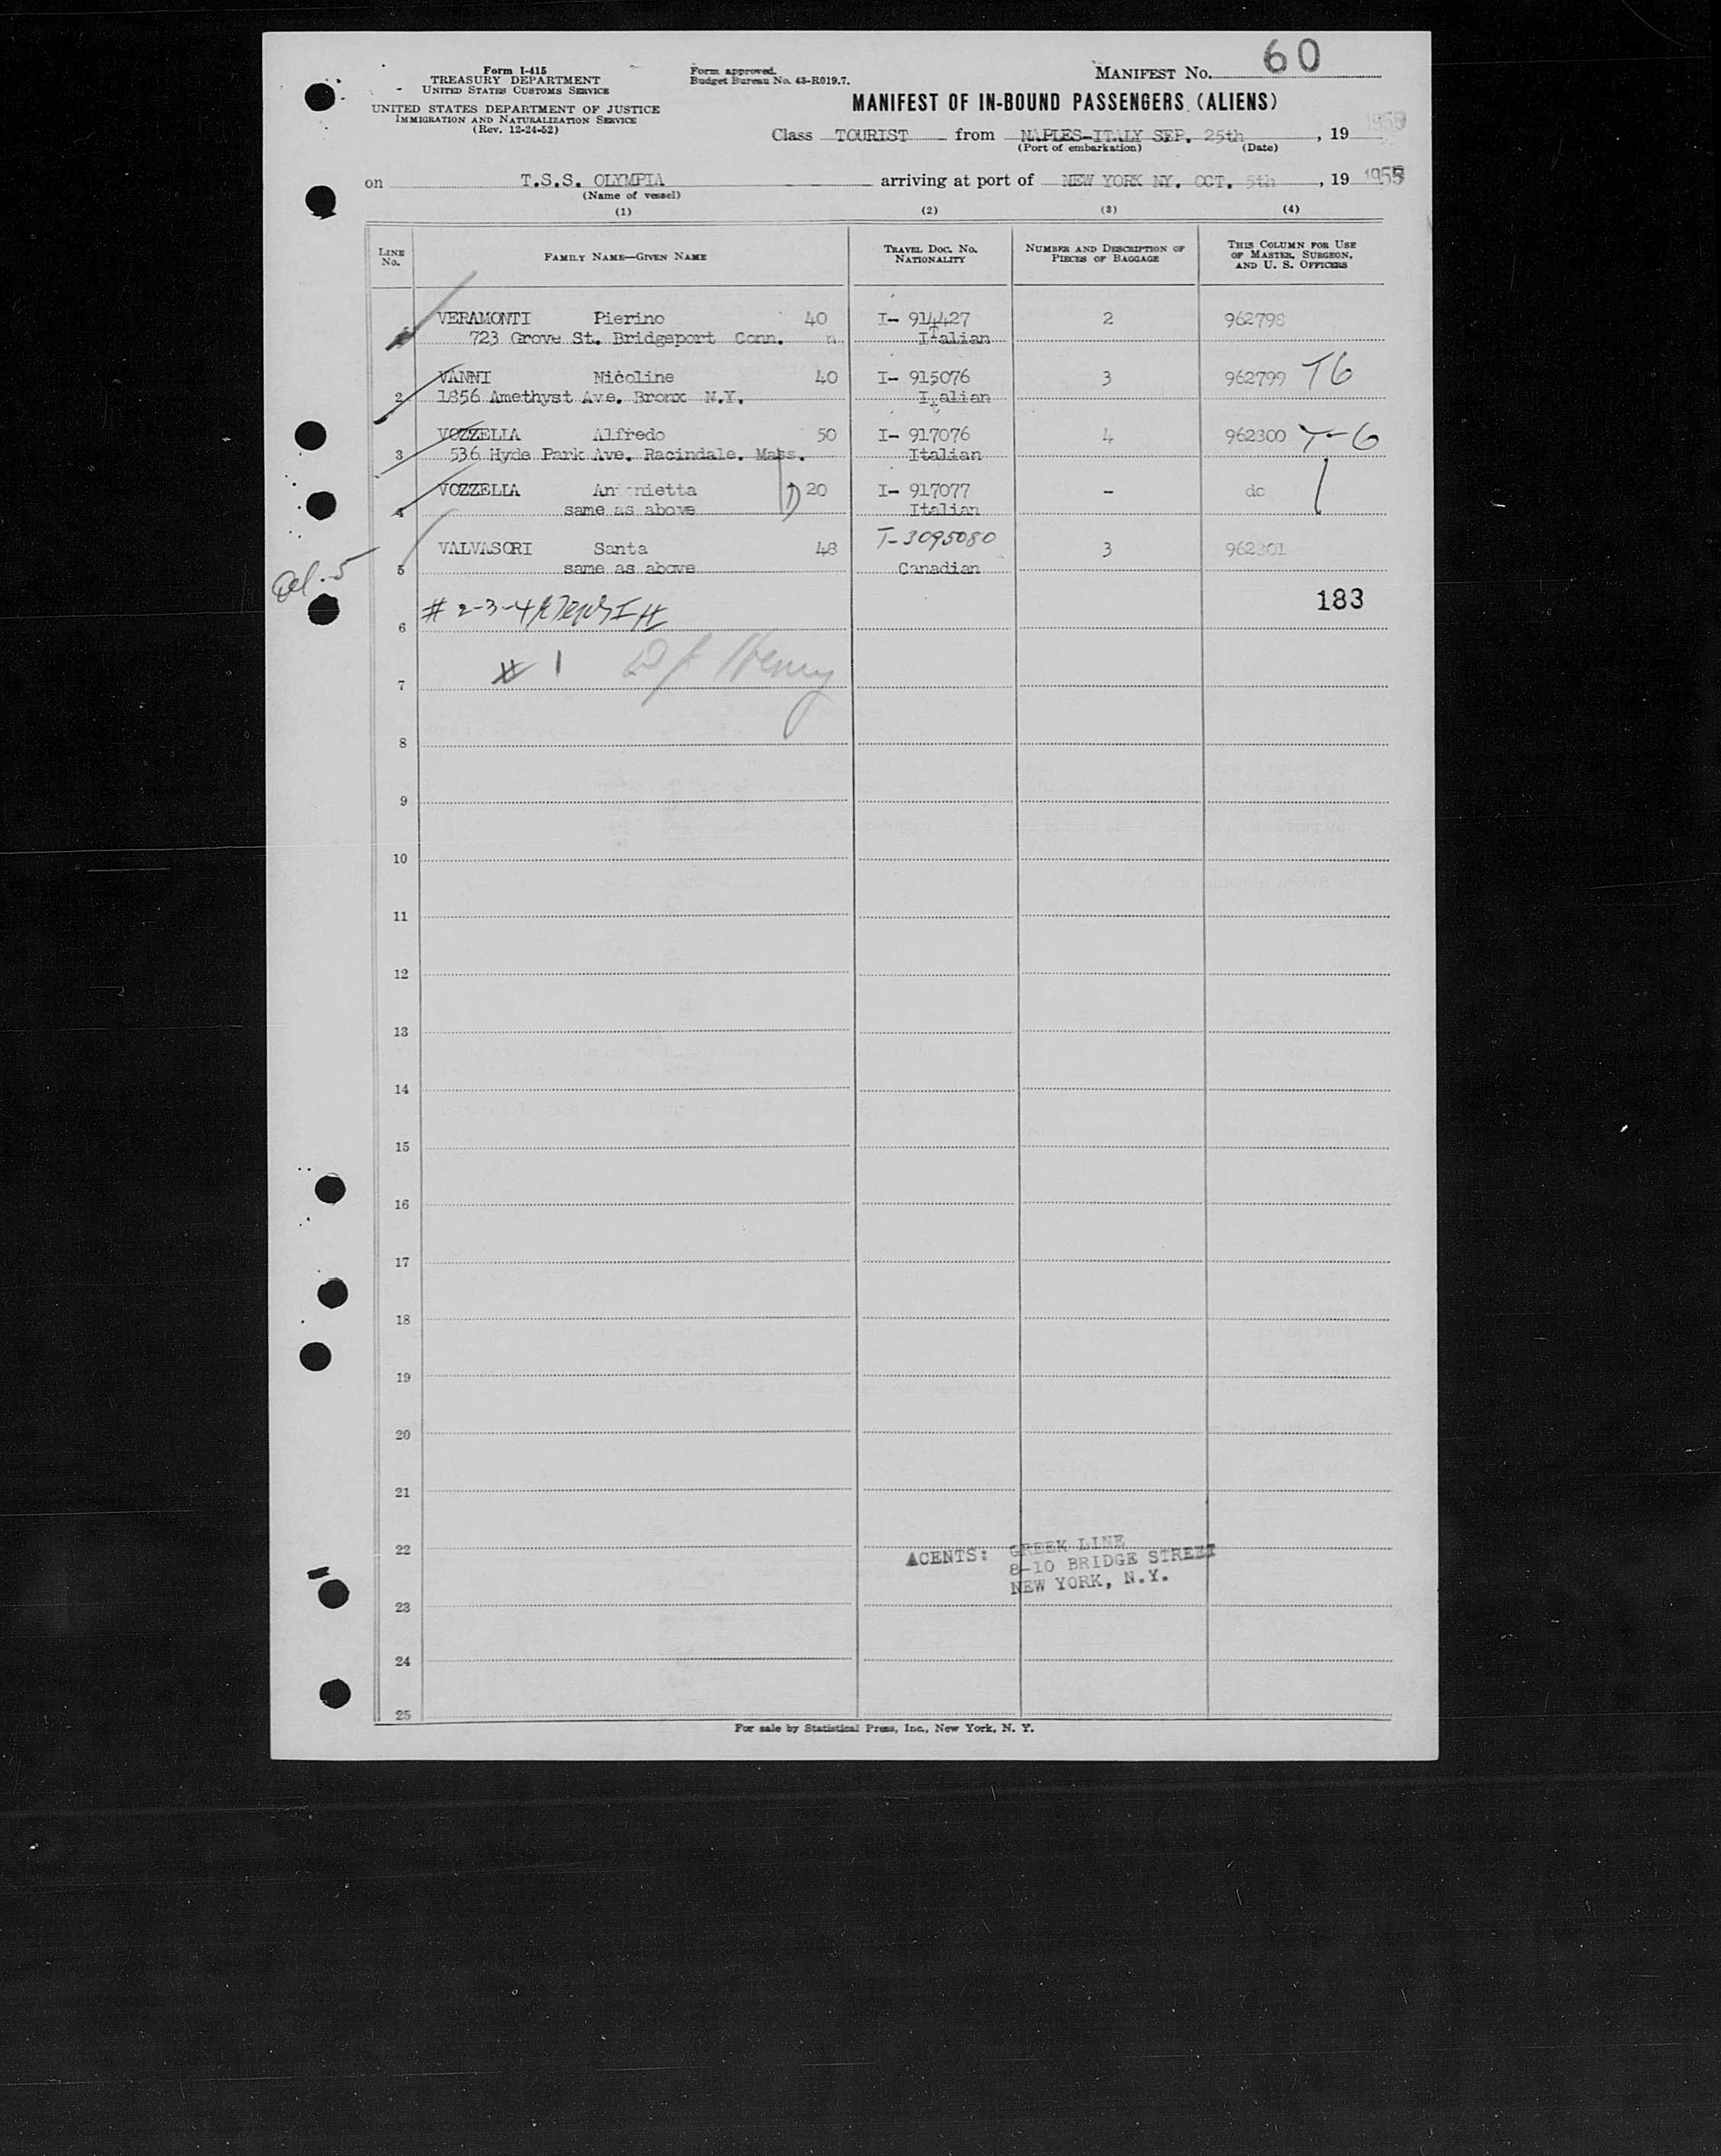 Form I-415
TREASURY DEPARTMENT
UNITED STATES CUSTOMS SERVICE
UNITED STATES DEPARTMENT OF JUSTICE
IMMIGRATION AND NATURALIZATION SERVICE
(Rev. 12-24-52)
Form approved.
Budget Bureau No. 43-R019.7.
MANIFEST No. 60
MANIFEST OF IN-BOUND PASSENGERS (ALIENS)
Class TOURIST from NAPLES-ITALY SEP. 25th, 19
(Port of embarkation) (Date)
on T.S.S. OLYMPIA arriving at port of NEW YORK NY. OCT. 5th, 19
(Name of vessel)
(1) (2) (3) (4)
LINE No. FAMILY NAME—GIVEN NAME TRAVEL DOC. No. NATIONALITY NUMBER AND DESCRIPTION OF PIECES OF BAGGAGE THIS COLUMN FOR USE OF MASTER, SURGEON, AND U. S. OFFICERS
VERAMONTI Pierino 40 I- 914427 2 962798
723 Grove St. Bridgeport Conn. n Italian
VANNI Nicoline 40 I- 915076 3 962799 T6
2 1856 Amethyst Ave. Bronx N.Y. Italian
VOZZELLA Alfredo 50 I- 917076 4 962300 T-6
3 536 Hyde Park Ave. Racindale. Mass. Italian
VOZZELLA Antonietta 20 I- 917077 - do
4 same as above Italian
VALVASORI Santa 48 T-3095080 3 962301
5 same as above Canadian
183
# 2-3-4
6
# 1 Henry
7
8
9
10
11
12
13
14
15
16
17
18
19
20
21
22
AGENTS: GREEK LINE
8-10 BRIDGE STREET
NEW YORK, N.Y.
23
24
25
For sale by Statistical Press, Inc., New York, N. Y.